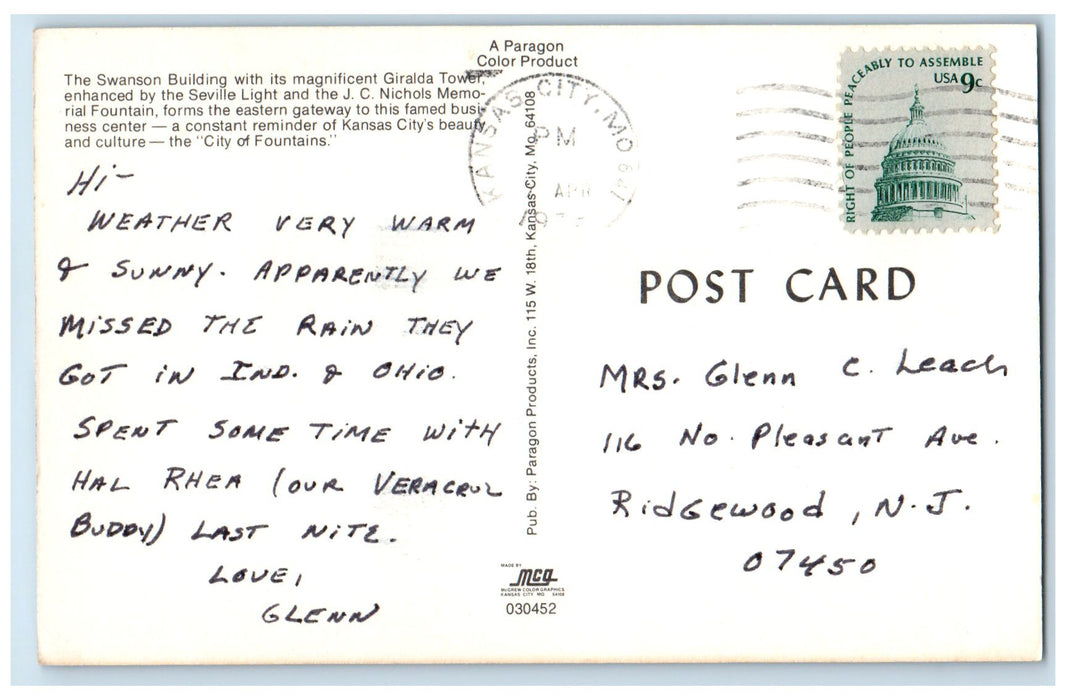 A Paragon
Color Product
The Swanson Building with its magnificent Giralda Tower,
enhanced by the Seville Light and the J. C. Nichols Memo-
rial Fountain, forms the eastern gateway to this famed busi-
ness center — a constant reminder of Kansas City's beauty
and culture — the "City of Fountains."
Hi-
WEATHER VERY WARM
& SUNNY. APPARENTLY WE
MISSED THE RAIN THEY
GOT IN IND. & OHIO.
SPENT SOME TIME WITH
HAL RHEA (OUR VERACRUZ
BUDDY) LAST NITE.
LOVE,
GLENN
Pub. By: Paragon Products, Inc. 115 W. 18th, Kansas City, Mo. 64108
MADE BY
MCG
McGREW COLOR GRAPHICS
KANSAS CITY MO 64108
030452
KANSAS CITY, MO
PM
APR
RIGHT OF PEOPLE PEACEABLY TO ASSEMBLE
USA 9c
POST CARD
MRS. Glenn C. Leach
116 No. Pleasant Ave.
Ridgewood, N.J.
07450